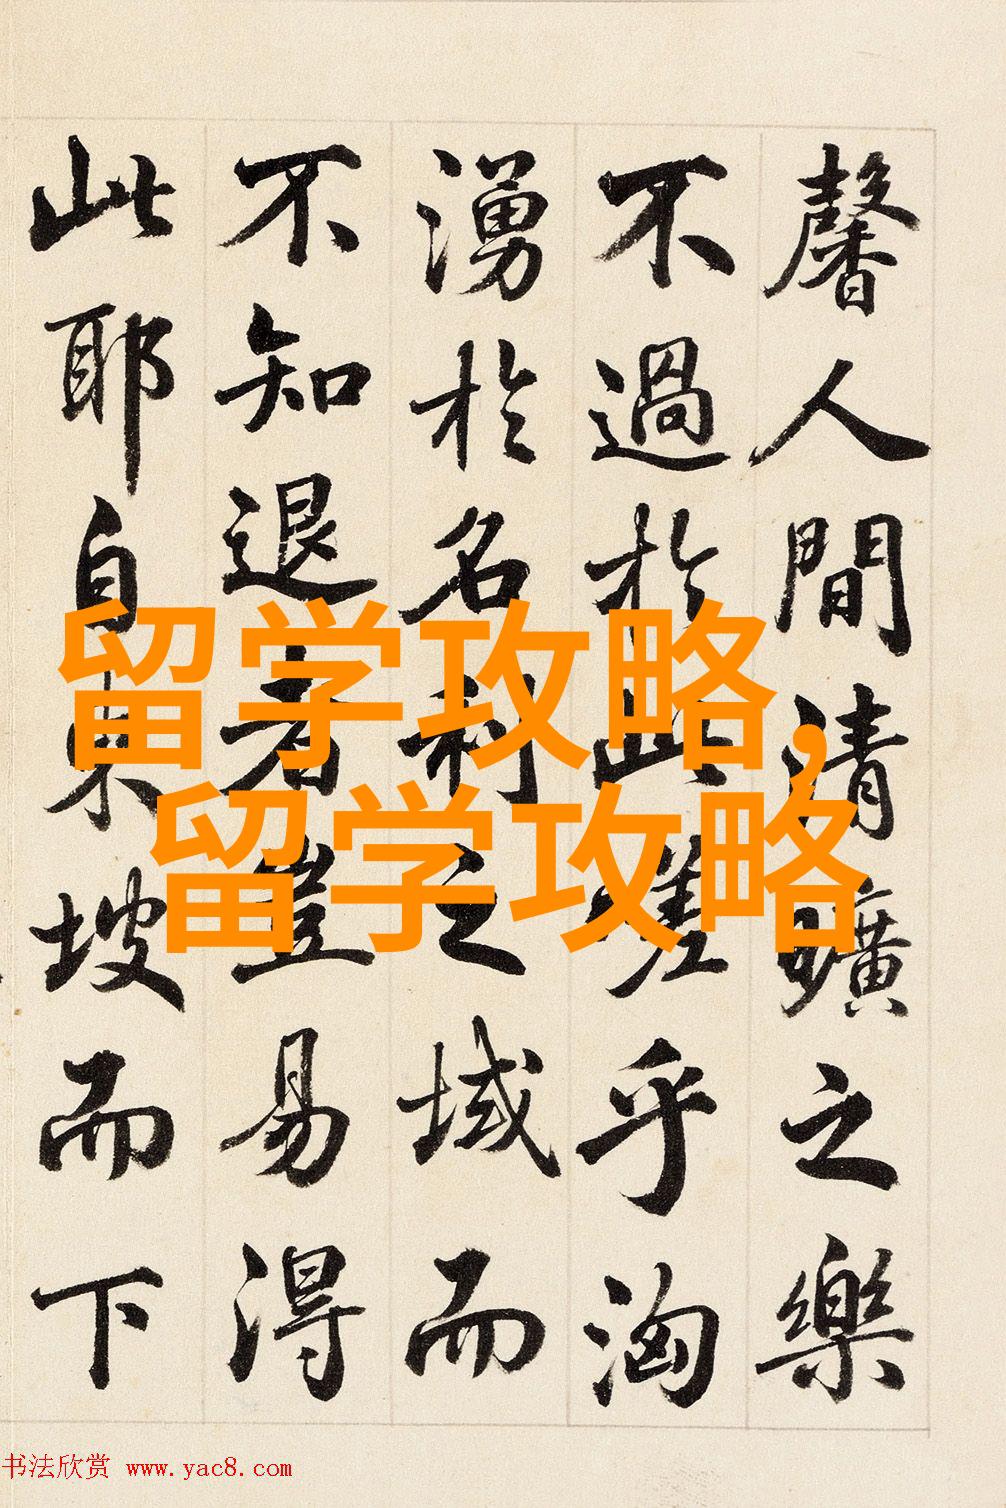 馨人間清曠之樂
不過於此嗟乎洶
湧於名利之域而
不知退者豈易得
此耶自東坡而下
留学攻略,
留学攻略
书法欣赏 www.yac8.com